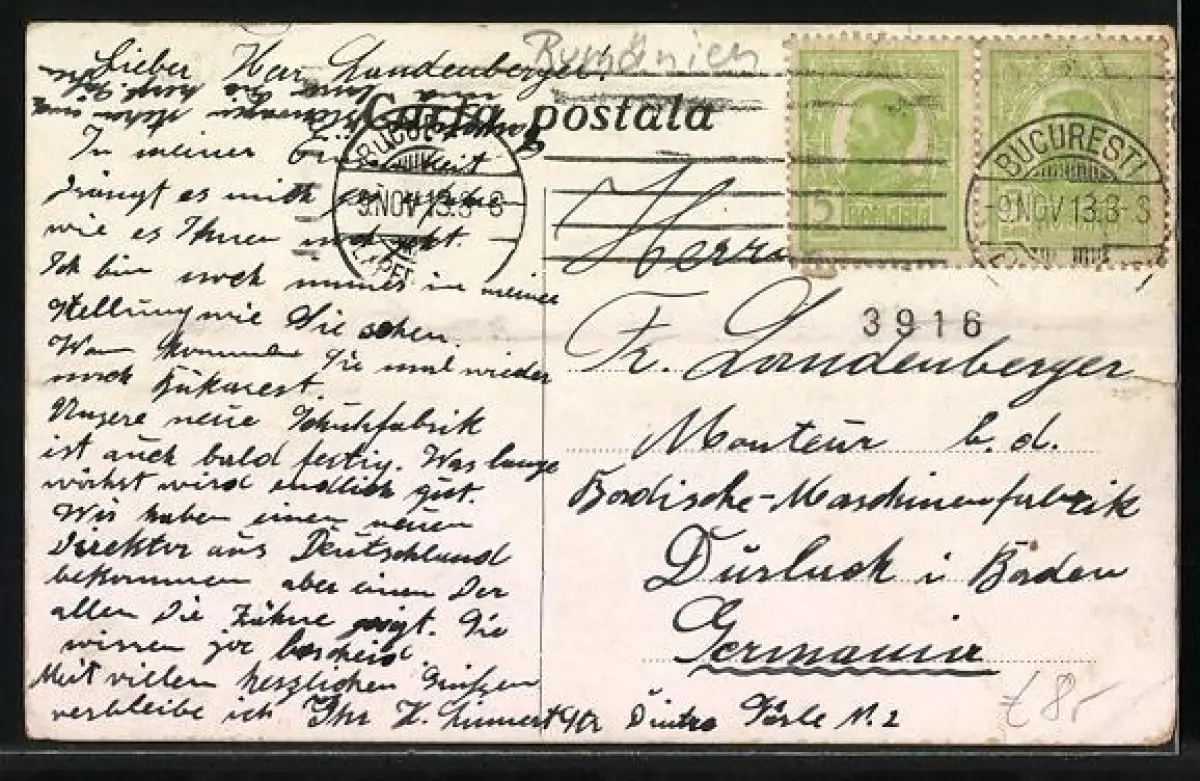 Rumänien
Lieber Herr Landenberger!
Carta postala
In meiner
drängt es mich
wie es Ihnen noch geht.
Ich bin noch immer in meiner
Stellung wie Sie sehen.
Wan kommen Sie mal wieder
nach Bükarest.
Unsere neue Schuhfabrik
ist auch bald fertig. Was lange
wöhrt wird endlich gut.
Wir haben einen neuen
Direktor aus Deutschland
bekommen aber einen Der
allen die Zähne zeigt. Sie
wissen ja bescheid.
Mit vielen herzlichen Grüßen
verbleibe ich Ihr
BUCURESTI
9.NOV 13.3-S
5
ROMANIA
BUCURESTI
9.NOV 13.3-S
3916
Herrn
Fr. Landenberger
Monteur b. d.
Badische-Maschinenfabrik
Durlach i Baden
Germania